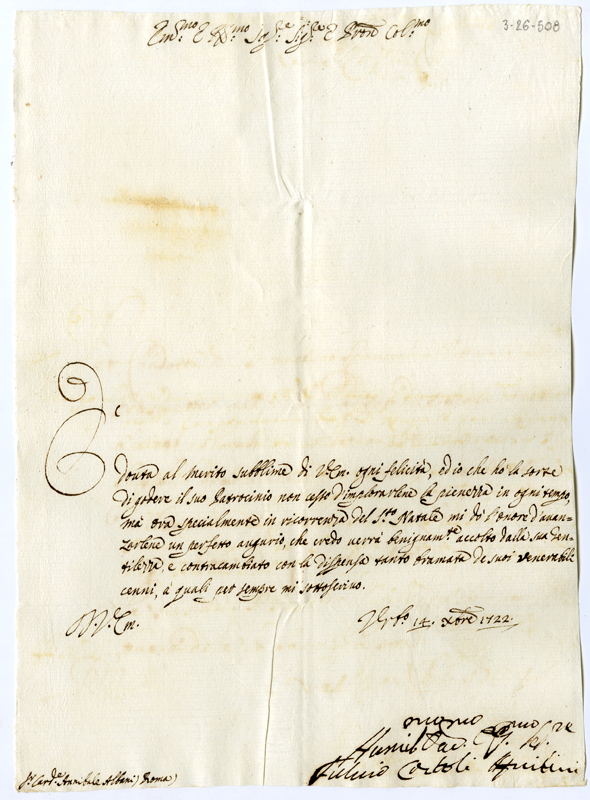 3-26-508
Em.mo E R.mo Sig.re Sig.re E Pron Col.mo
È douta al merito subblime di V.Em. ogni felicità, ed io che hò la sorte
di godere il suo Patrocinio non cesso d'implorarlene la pienezza in ogni tempo,
mà ora specialmente in ricorrenza del S.to Natale mi dò l'onore d'avan-
zarlene un perfetto augurio, che credo verrà benignam.te accolto dalla sua gen-
tilezza, e contracambiato con la dispensa tanto bramata de suoi venerabili
cenni, à quali per sempre mi sottoscrivo.
D V. Em.
Urb.o 14. Xbre 1722.
Humil Dev.
Fulvio Corboli
S.r Card.e Annibale Albani) Roma)